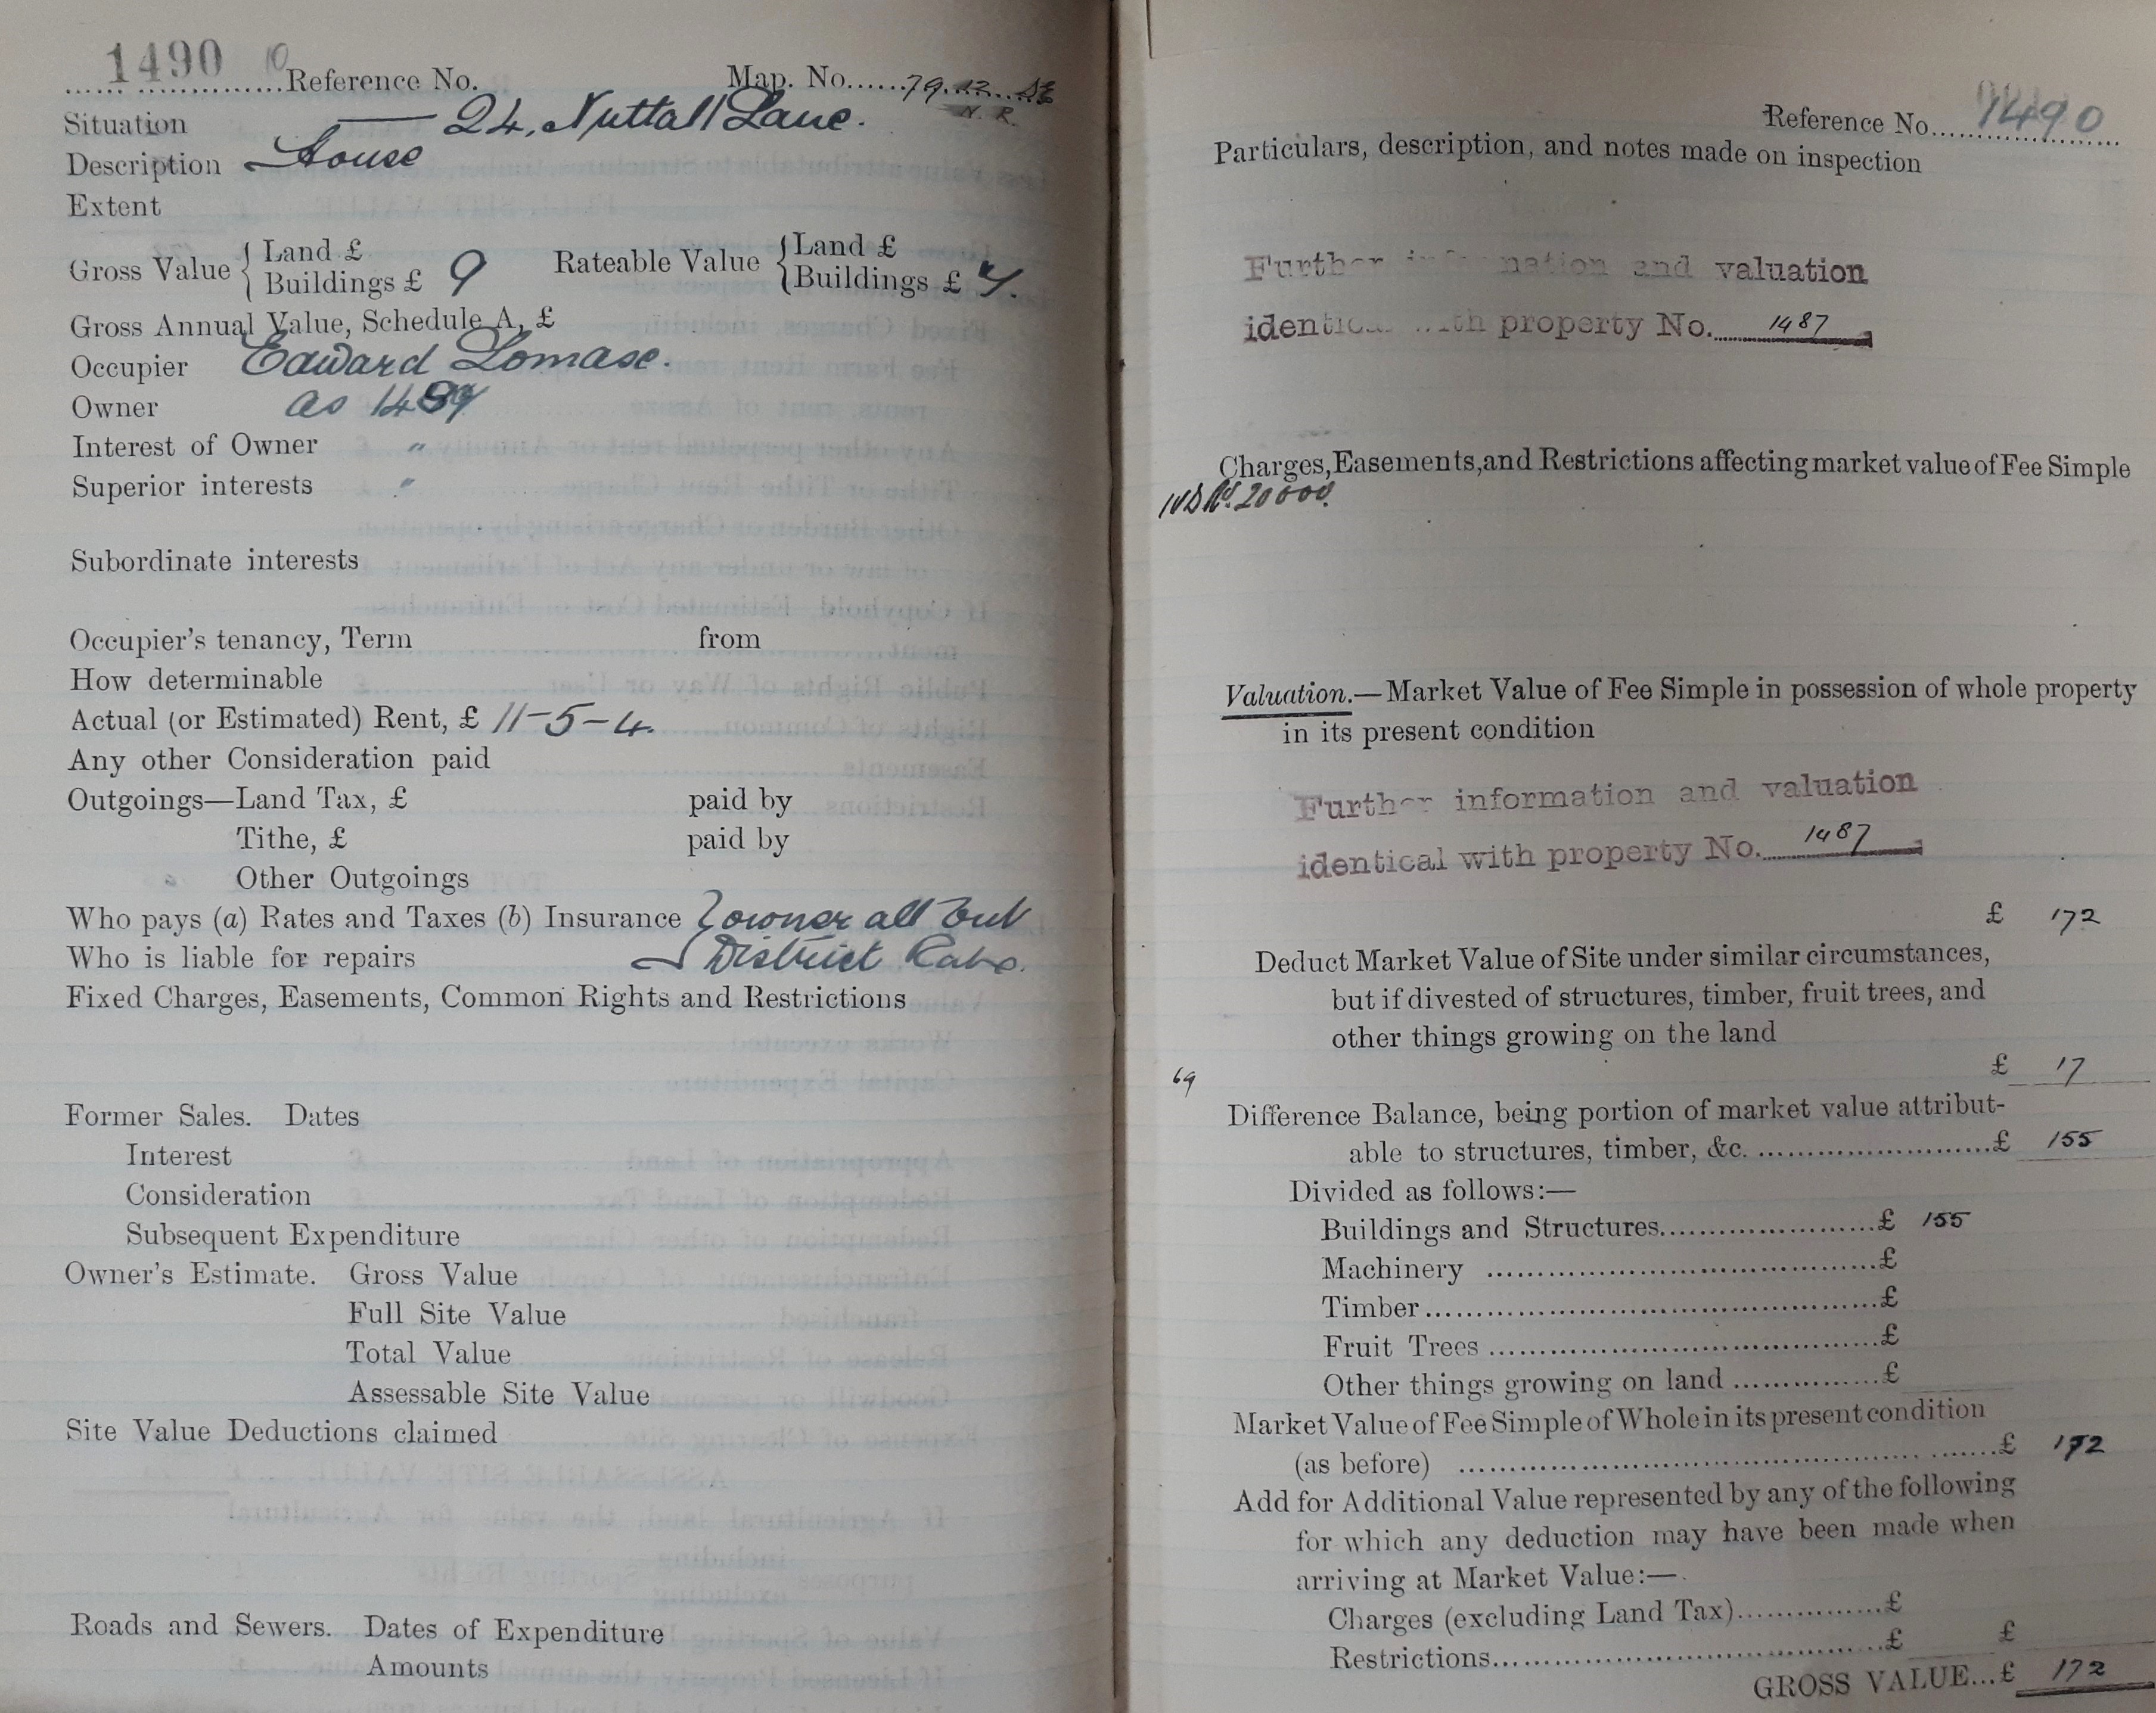 1490 10 Reference No. Map. No. 79.12. SE
N. R.
Situation — 24, Nuttall Lane.
Description House
Extent
Gross Value { Land £
Buildings £ 9
Rateable Value { Land £
Buildings £ 7.
Gross Annual Value, Schedule A, £
Occupier Edward Lomase.
Owner as 1487
Interest of Owner "
Superior interests "
Subordinate interests
Occupier's tenancy, Term from
How determinable
Actual (or Estimated) Rent, £ 11-5-4.
Any other Consideration paid
Outgoings—Land Tax, £ paid by
Tithe, £ paid by
Other Outgoings
Who pays (a) Rates and Taxes (b) Insurance } owner all but
Who is liable for repairs District Rate.
Fixed Charges, Easements, Common Rights and Restrictions
Former Sales. Dates
Interest
Consideration
Subsequent Expenditure
Owner's Estimate. Gross Value
Full Site Value
Total Value
Assessable Site Value
Site Value Deductions claimed
Roads and Sewers. Dates of Expenditure
Amounts
Reference No. 1490
Particulars, description, and notes made on inspection
Further information and valuation
identical with property No. 1487
Charges, Easements, and Restrictions affecting market value of Fee Simple
20000
Valuation.—Market Value of Fee Simple in possession of whole property
in its present condition
Further information and valuation
identical with property No. 1487
£ 172
Deduct Market Value of Site under similar circumstances,
but if divested of structures, timber, fruit trees, and
other things growing on the land
69 £ 17
Difference Balance, being portion of market value attribut-
able to structures, timber, &c. £ 155
Divided as follows:—
Buildings and Structures £ 155
Machinery £
Timber £
Fruit Trees £
Other things growing on land £
Market Value of Fee Simple of Whole in its present condition
(as before) £ 172
Add for Additional Value represented by any of the following
for which any deduction may have been made when
arriving at Market Value:—
Charges (excluding Land Tax) £
Restrictions £ £
GROSS VALUE...£ 172